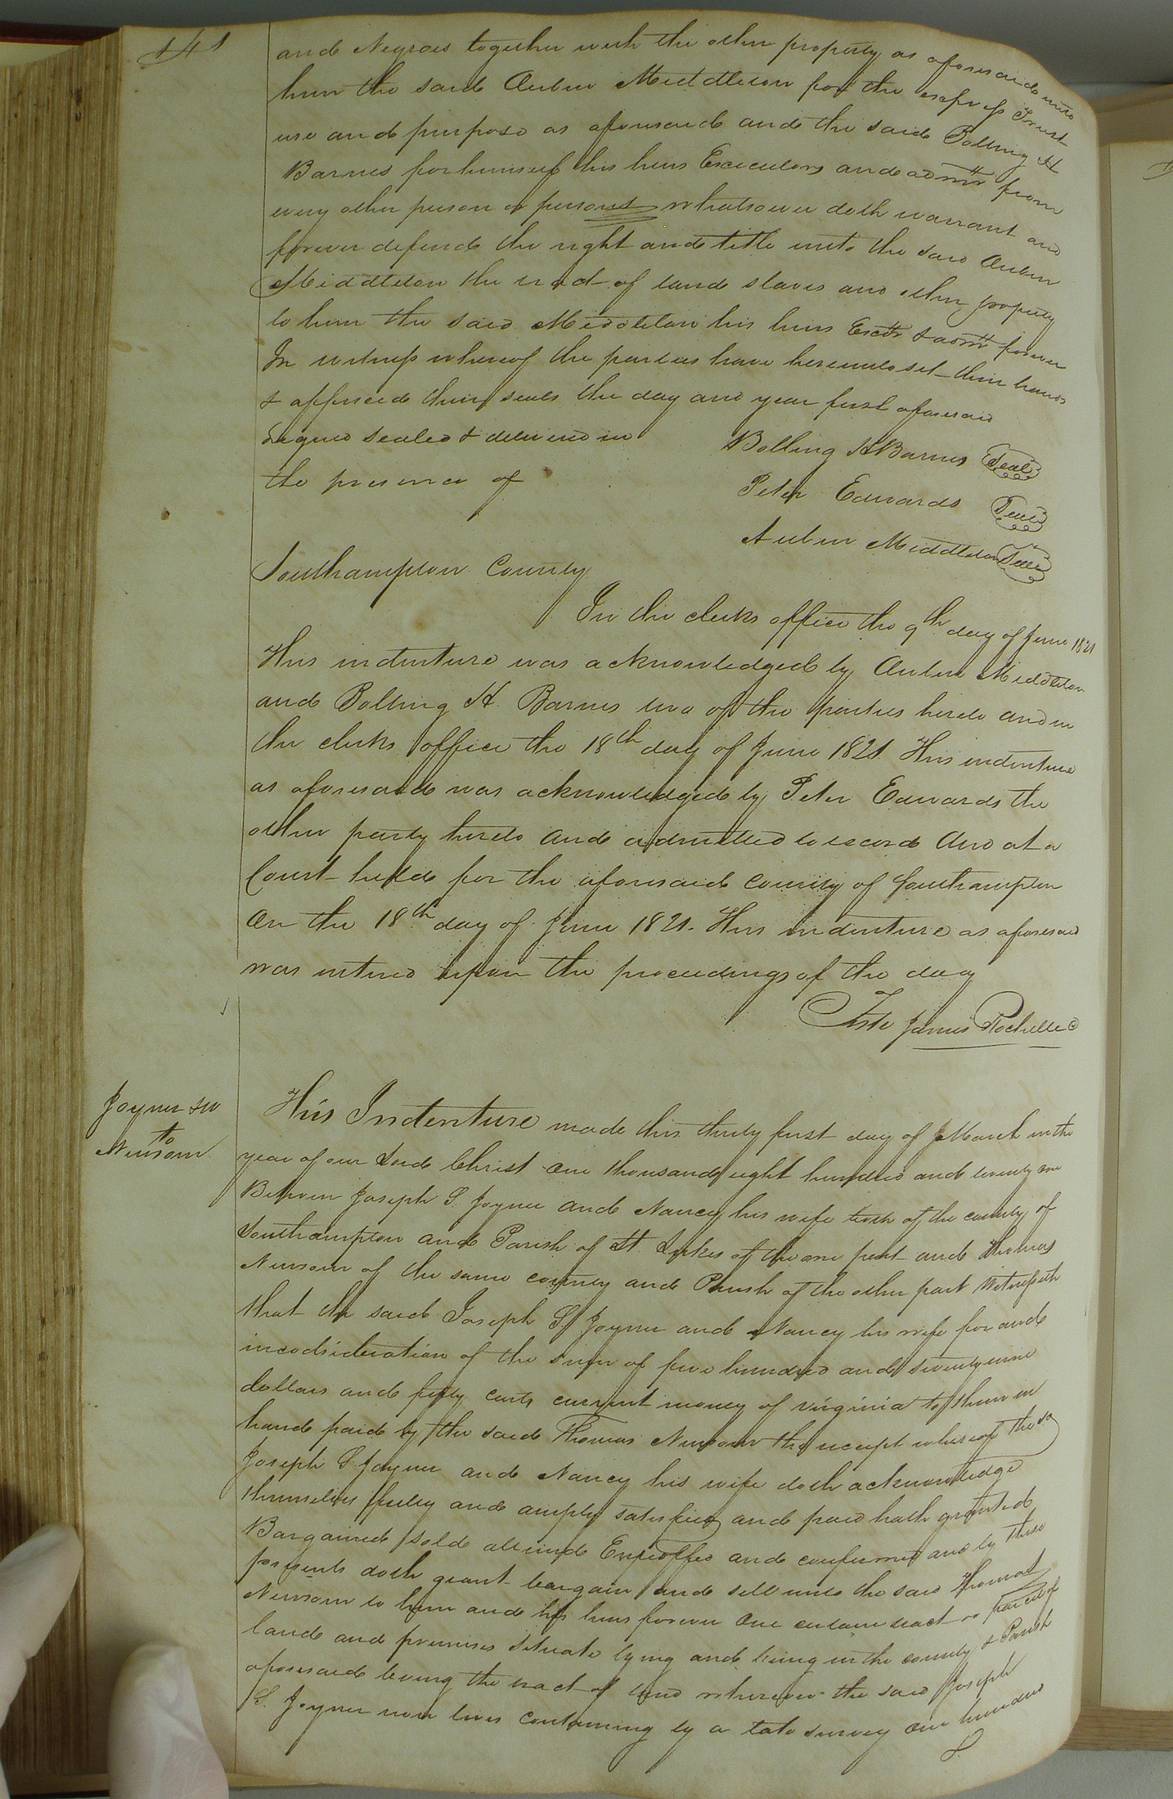 141
and Negroes together with the other property as aforesaid unto
him the said Aubin Middleton for the express Trust
use and purpose as aforesaid and the said Bolling H
Barnes for himself his heirs Executors and admrs from
every other person or persons whatsoever doth warrant and
forever defend the right and title unto the said Aubin
Middleton the tract of land slaves and other property
to him the said Middleton his heirs Exctrs & admrs forever
In witness whereof the parties have hereunto set their hands
& affixed their seals the day and year first aforesaid
Signed sealed & delivered in
the presence of
Bolling H Barnes Seal
Peter Edwards Seal
Aubin Middleton Seal
Southampton County
In the clerks office the 9th day of June 1821
This indenture was acknowledged by Aubin Middleton
and Bolling H. Barnes two of the parties hereto and in
the clerks office the 18th day of June 1821 This indenture
as aforesaid was acknowledged by Peter Edwards the
other party hereto and admitted to record And at a
Court held for the aforesaid county of Southampton
on the 18th day of June 1821. This indenture as aforesaid
was entered upon the proceedings of the day
Teste James Rochelle C
Joyner &w
to
Newsom
This Indenture made this thirty first day of March in the
year of our Lord Christ one thousand eight hundred and twenty one
Between Joseph S. Joyner and Nancy his wife both of the county of
Southampton and Parish of St. Lukes of the one part and Thomas
Newsom of the same county and Parish of the other part Witnesseth
that the said Joseph S. Joyner and Nancy his wife for and
incodsideration of the sum of five hundred and seventy nine
dollars and fifty cents current money of virginia to them in
hand paid by the said Thomas Newsom the receipt whereof the sd
Joseph S Joyner and Nancy his wife doth acknowledge
themselves fully and amply satisfied and paid hath granted
Bargained sold aliend Enfeoffed and confirmed and by these
presents doth grant bargain and sell unto the said Thomas
Newsom to him and his heirs forever One certain tract or parcel of
land and premises situate lying and being in the county & Parish
aforesaid being the tract of land whereon the said Joseph
S. Joyner now lives containing by a late survey one hundred